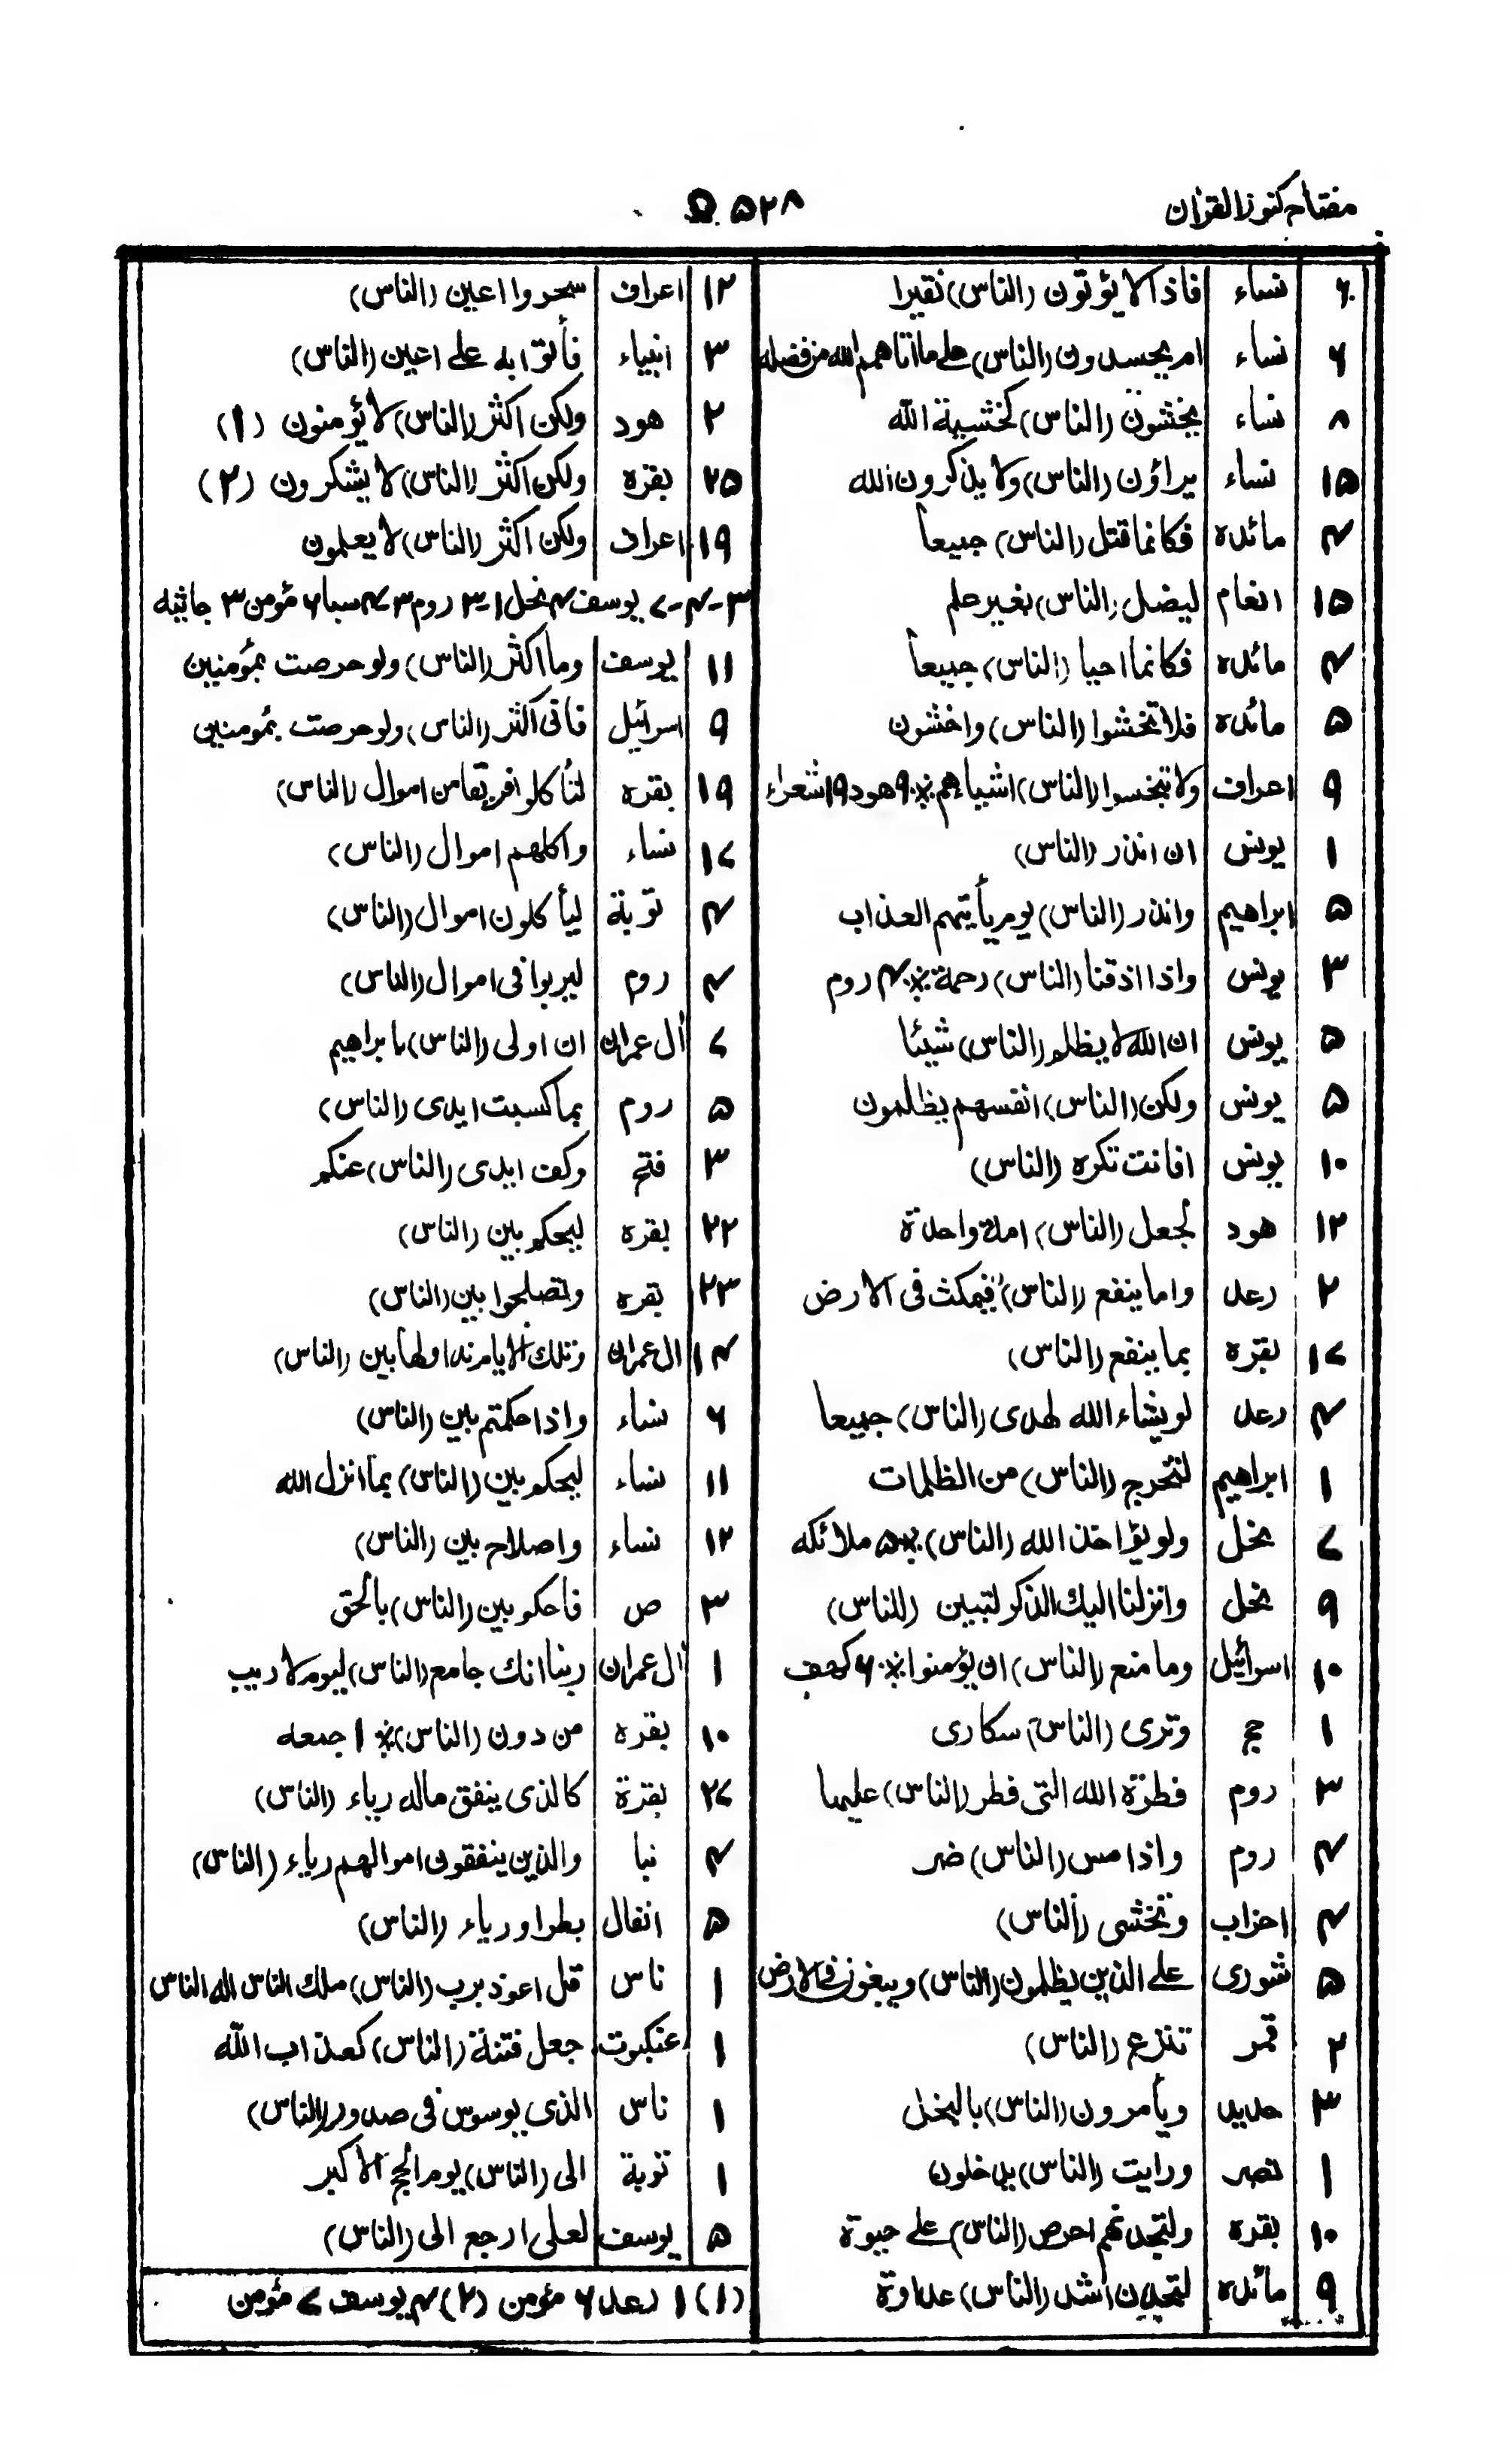 مفتاح كنوز القرآن
۵۲۸
۶ نساء فاذا لا يؤتون (الناس) نقيرا
۶ نساء ام يحسدون (الناس) على ما اتاهم الله من فضله
۸ نساء يخشون (الناس) كخشية الله
۱۵ نساء يراؤن (الناس) ولا يذكرون الله
۴ مائده فكانما قتل (الناس) جميعاً
۱۵ انعام ليضل (الناس) بغير علم
۴ مائده فكانما احيا (الناس) جميعاً
۵ مائده فلا تخشوا (الناس) واخشون
۹ اعراف ولا تبخسوا (الناس) اشياءهم※ ۹ هود ۱۹ شعراء
۱ يونس ان انذر (الناس)
۵ ابراهيم وانذر (الناس) يوم يأتيهم العذاب
۳ يونس واذا اذقنا (الناس) رحمة※ ۴ روم
۵ يونس ان الله لا يظلم (الناس) شيئا
۵ يونس ولكن (الناس) انفسهم يظلمون
۱۰ يونس افانت تكره (الناس)
۱۲ هود لجعل (الناس) امة واحدة
۲ رعد واما ينفع (الناس) فيمكث فى الارض
۱۷ بقره بما ينفع (الناس)
۴ رعد لو يشاء الله لهدى (الناس) جميعا
۱ ابراهيم لتخرج (الناس) من الظلمات
۷ نحل ولو يؤاخذ الله (الناس)※ ۵ ملائكه
۹ نحل وانزلنا اليك الذكر لتبين (للناس)
۱۰ اسرائيل وما منع (الناس) ان يؤمنوا※ ۶ كهف
۱ حج وترى (الناس) سكارى
۳ روم فطرة الله التى فطر (الناس) عليها
۴ روم واذا مس (الناس) ضر
۴ احزاب وتخشى (الناس)
۵ شورى على الذين يظلمون (الناس) ويبغون فى الارض
۲ قمر تنزع (الناس)
۳ حديد ويأمرون (الناس) بالبخل
۱ نصر ورايت (الناس) يدخلون
۱۰ بقره ولتجدنهم احرص (الناس) على حيوة
۹ مائده لتجدن اشد (الناس) عداوة
۱۲ اعراف سحروا اعين (الناس)
۳ انبياء فأتوا به على اعين (الناس)
۲ هود ولكن اكثر (الناس) لا يؤمنون (۱)
۲۵ بقره ولكن اكثر (الناس) لا يشكرون (۲)
۱۹ اعراف ولكن اكثر (الناس) لا يعلمون
۳-۴-۷ يوسف ۴ نحل ۱-۳ روم ۳-۴ سبا ۶ مؤمن ۳ جاثيه
۱۱ يوسف وما اكثر (الناس) ولو حرصت بمؤمنين
۹ اسرائيل فابى اكثر (الناس) ولو حرصت بمومنين
۱۹ بقره لتأكلوا فريقا من اموال (الناس)
۱۷ نساء واكلهم اموال (الناس)
۴ توبة ليأكلون اموال (الناس)
۴ روم ليربوا فى اموال (الناس)
۷ أل عمران ان اولى (الناس) بابراهيم
۵ روم بما كسبت ايدى (الناس)
۳ فتح وكف ايدى (الناس) عنكم
۲۲ بقره ليحكم بين (الناس)
۲۳ بقره وتصلحوا بين (الناس)
۱۴ ال عمران وتلك الايام نداولها بين (الناس)
۶ نساء واذا حكمتم بين (الناس)
۱۱ نساء ليحكم بين (الناس) بما انزل الله
۱۲ نساء واصلاح بين (الناس)
۳ ص فاحكم بين (الناس) بالحق
۱ أل عمران ربنا انك جامع (الناس) ليوم لا ريب
۱۰ بقره من دون (الناس)※ ۱ جمعه
۲۷ بقرة كالذى ينفق ماله رياء (الناس)
۴ نبا والذين ينفقون اموالهم رياء (الناس)
۵ انفال بطرا ورياء (الناس)
۱ ناس قل اعوذ برب (الناس) ملك الناس اله الناس
۱ عنكبوت جعل فتنة (الناس) كعذاب الله
۱ ناس الذى يوسوس فى صدور (الناس)
۱ توبة الى (الناس) يوم الحج الاكبر
۵ يوسف لعلى ارجع الى (الناس)
(۱) ۱ رعد ۶ مؤمن (۲) ۴ يوسف ۷ مؤمن